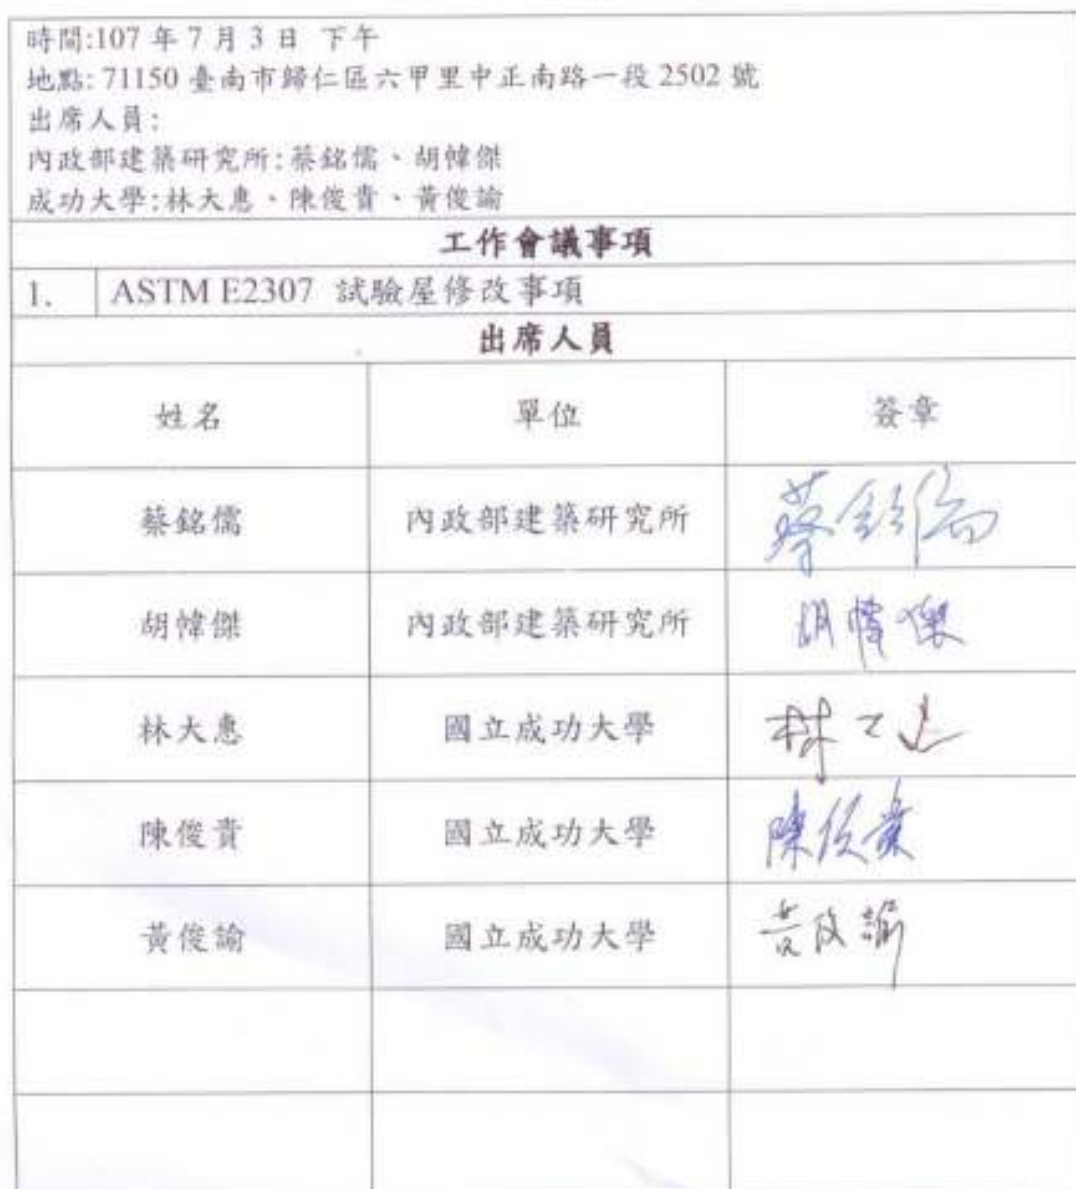 時間:107 年 7 月 3 日 下午
地點: 71150 臺南市歸仁區六甲里中正南路一段 2502 號
出席人員:
內政部建築研究所:蔡銘儒、胡幃傑
成功大學:林大惠、陳俊貴、黃俊諭
工作會議事項
1. ASTM E2307 試驗屋修改事項
出席人員
姓名 單位 簽章
蔡銘儒 內政部建築研究所 蔡銘儒
胡幃傑 內政部建築研究所 胡幃傑
林大惠 國立成功大學 林大惠
陳俊貴 國立成功大學 陳俊貴
黃俊諭 國立成功大學 黃俊諭